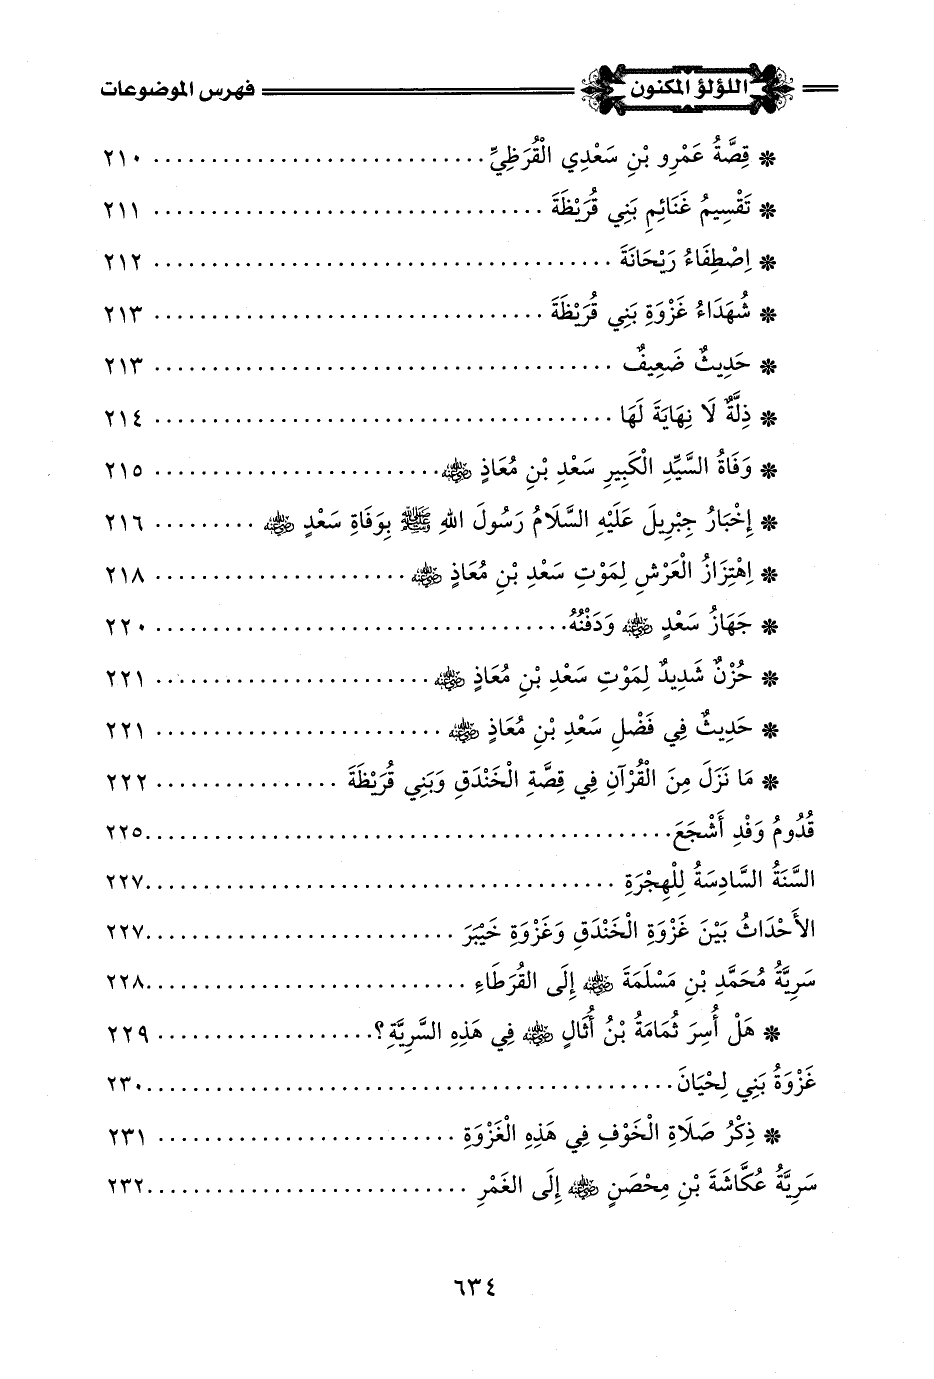 اللؤلؤ المكنون فهرس الموضوعات
* قِصَّةُ عَمْرِو بْنِ سَعْدِي الْقُرَظِيِّ ............................ ٢١٠
* تَقْسِيمُ غَنَائِمِ بَنِي قُرَيْظَةَ ................................. ٢١١
* اِصْطِفَاءُ رَيْحَانَةَ ....................................... ٢١٢
* شُهَدَاءُ غَزْوَةِ بَنِي قُرَيْظَةَ ................................. ٢١٣
* حَدِيثٌ ضَعِيفٌ ....................................... ٢١٣
* ذِلَّةٌ لَا نِهَايَةَ لَهَا ....................................... ٢١٤
* وَفَاةُ السَّيِّدِ الْكَبِيرِ سَعْدِ بْنِ مُعَاذٍ رضي الله عنه ........................ ٢١٥
* إِخْبَارُ جِبْرِيلَ عَلَيْهِ السَّلَامُ رَسُولَ اللهِ ﷺ بِوَفَاةِ سَعْدٍ رضي الله عنه ......... ٢١٦
* اِهْتِزَازُ الْعَرْشِ لِمَوْتِ سَعْدِ بْنِ مُعَاذٍ رضي الله عنه ...................... ٢١٨
* جَهَازُ سَعْدٍ رضي الله عنه وَدَفْنُهُ ................................... ٢٢٠
* حُزْنٌ شَدِيدٌ لِمَوْتِ سَعْدِ بْنِ مُعَاذٍ رضي الله عنه ........................ ٢٢١
* حَدِيثٌ فِي فَضْلِ سَعْدِ بْنِ مُعَاذٍ رضي الله عنه ......................... ٢٢١
* مَا نَزَلَ مِنَ الْقُرْآنِ فِي قِصَّةِ الْخَنْدَقِ وَبَنِي قُرَيْظَةَ ................ ٢٢٢
قُدُومُ وَفْدِ أَشْجَعَ ............................................. ٢٢٥
السَّنَةُ السَّادِسَةُ لِلْهِجْرَةِ ........................................ ٢٢٧
الأَحْدَاثُ بَيْنَ غَزْوَةِ الْخَنْدَقِ وَغَزْوَةِ خَيْبَرَ ........................... ٢٢٧
سَرِيَّةُ مُحَمَّدِ بْنِ مَسْلَمَةَ رضي الله عنه إِلَى القُرَطَاءِ ............................ ٢٢٨
* هَلْ أُسِرَ ثُمَامَةُ بْنُ أُثَالٍ رضي الله عنه فِي هَذِهِ السَّرِيَّةِ؟ ................... ٢٢٩
غَزْوَةُ بَنِي لِحْيَانَ ............................................. ٢٣٠
* ذِكْرُ صَلَاةِ الْخَوْفِ فِي هَذِهِ الْغَزْوَةِ .......................... ٢٣١
سَرِيَّةُ عُكَّاشَةَ بْنِ مِحْصَنٍ رضي الله عنه إِلَى الغَمْرِ ............................ ٢٣٢
٦٣٤